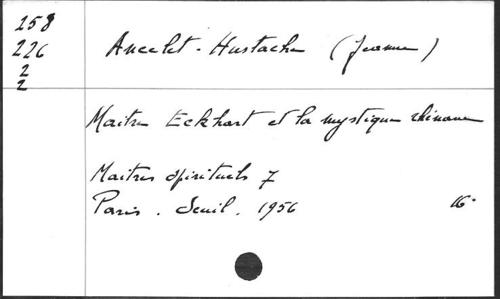 258
226
2
2
Ancelet-Hustache (Jeanne)
Maitre Eckhart et la mystique rhénane
Maitres spirituels 7
Paris. Seuil. 1956 16°